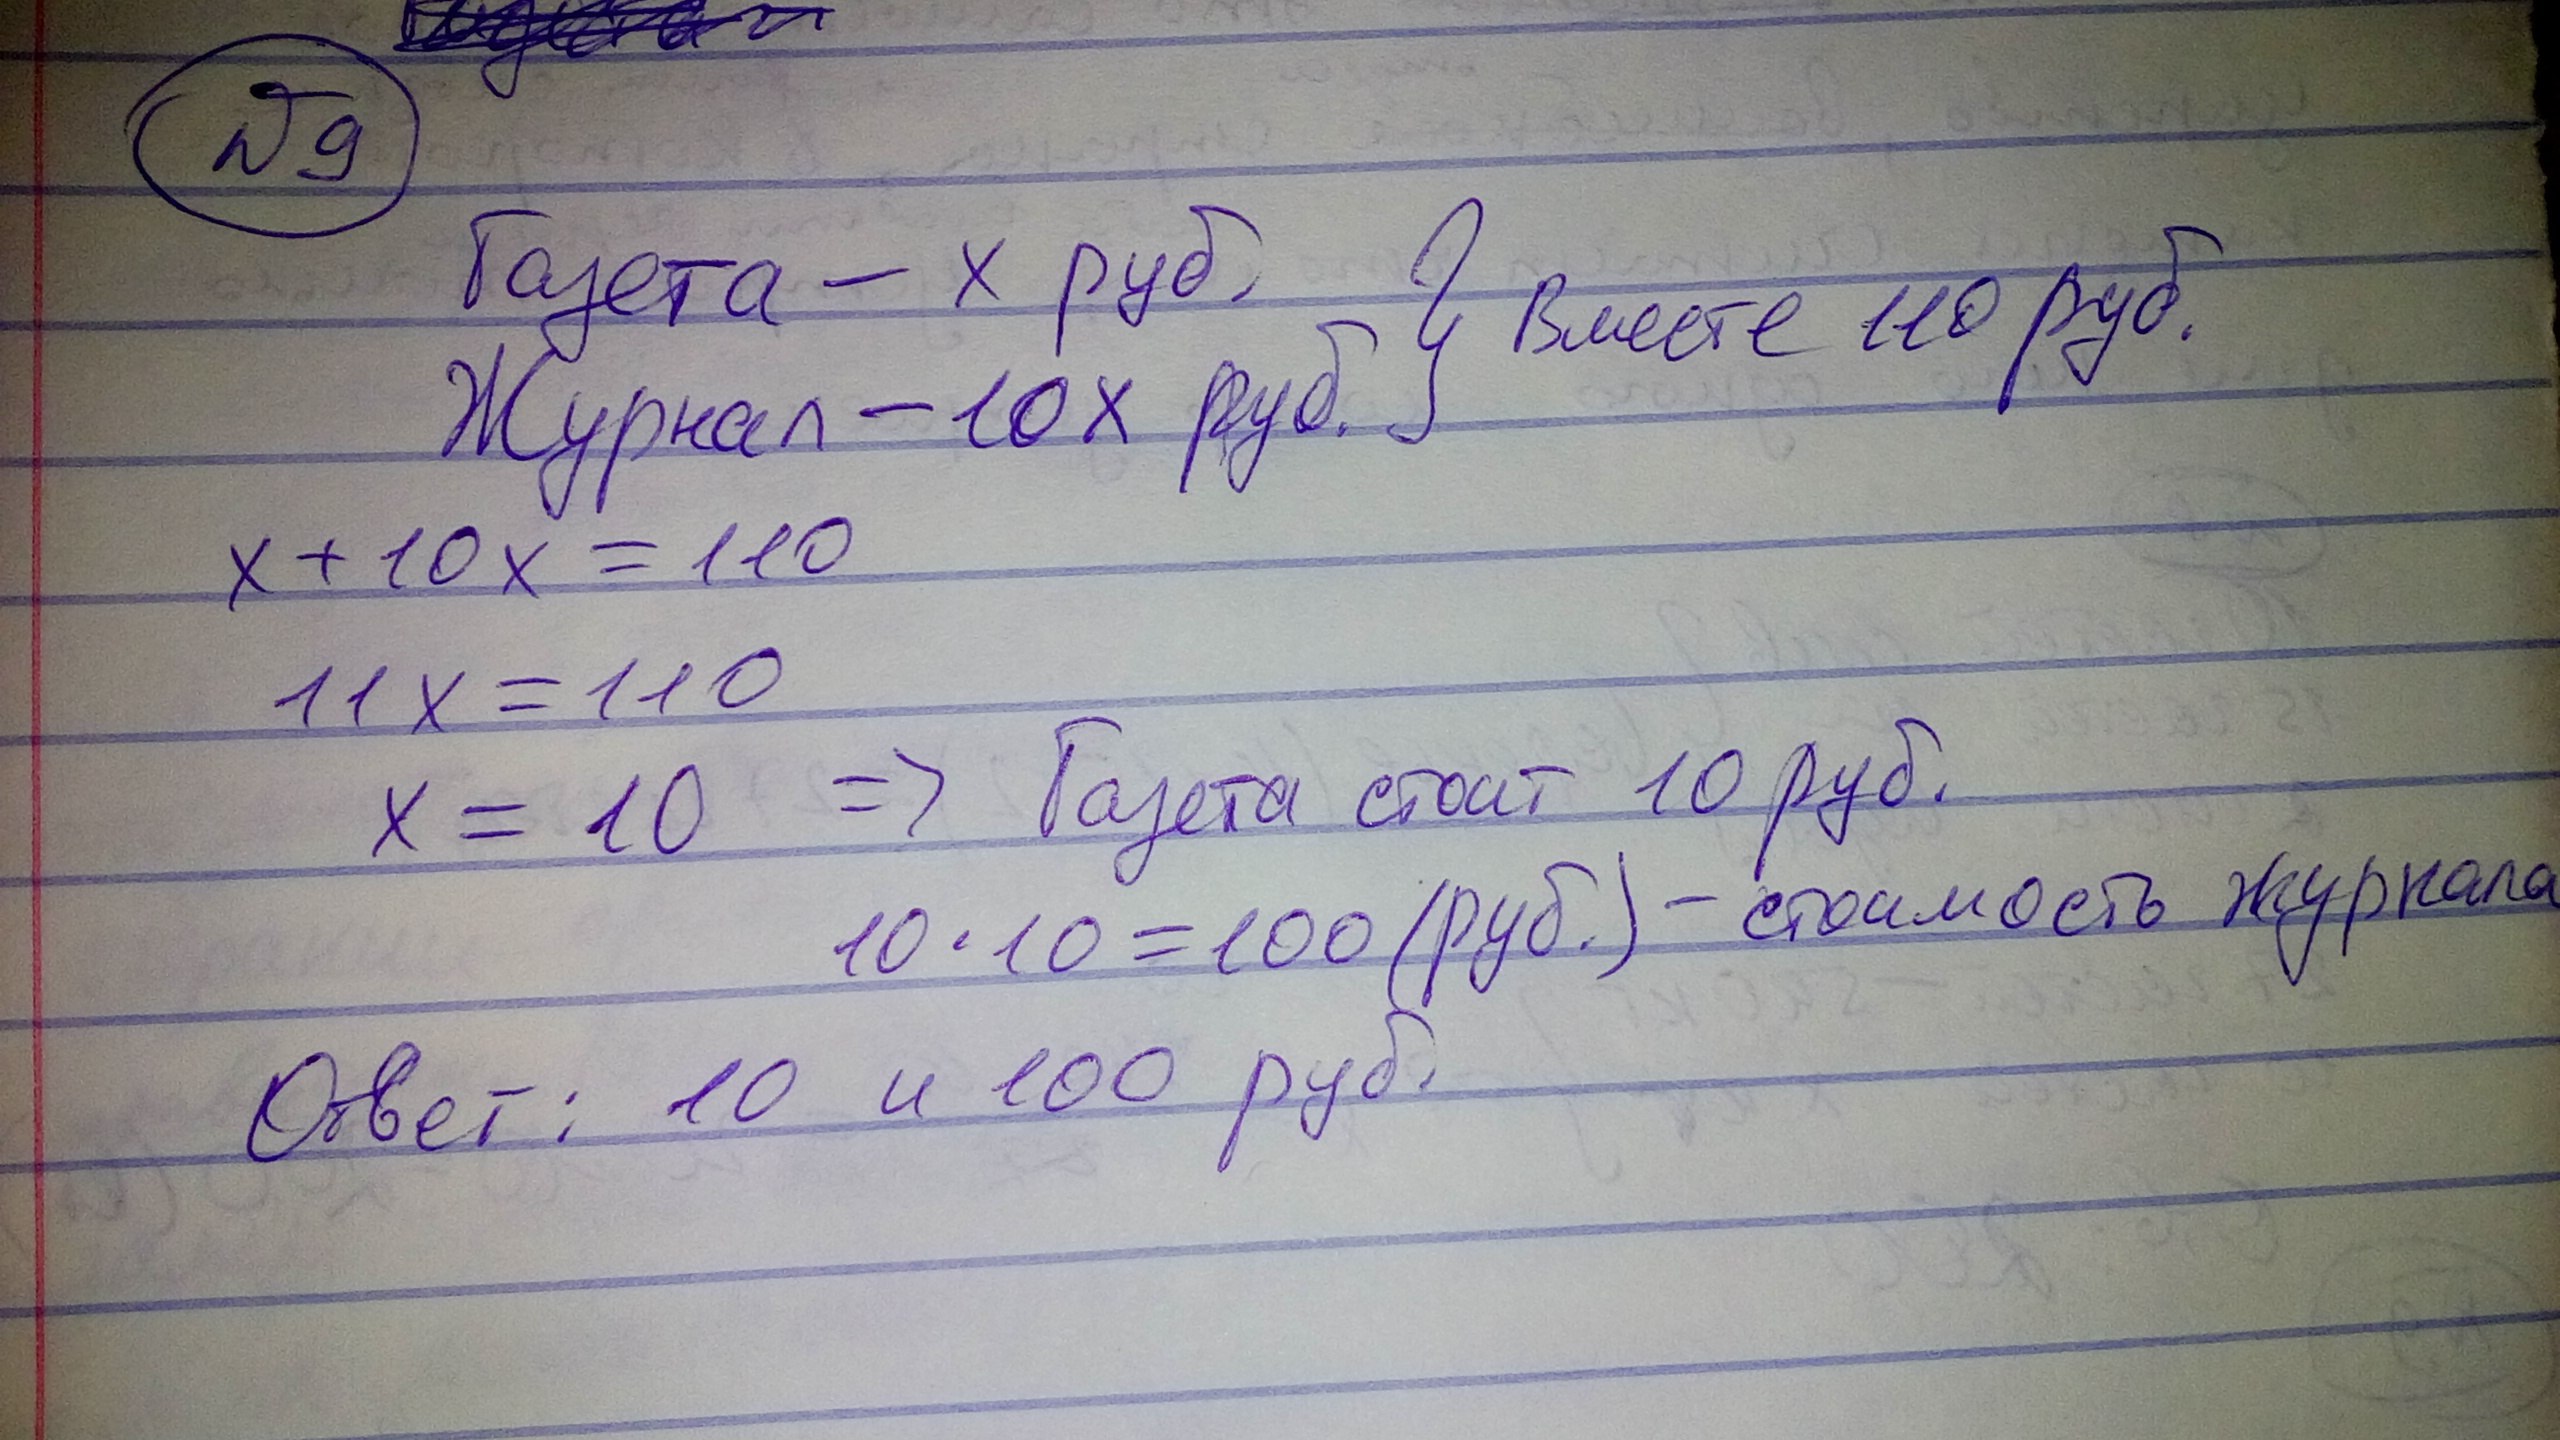 №9
Газета – х руб.
Журнал – 10х руб. } Вместе 110 руб.
х + 10х = 110
11х = 110
х = 10 => Газета стоит 10 руб.
10 · 10 = 100 (руб.) – стоимость журнала
Ответ: 10 и 100 руб.